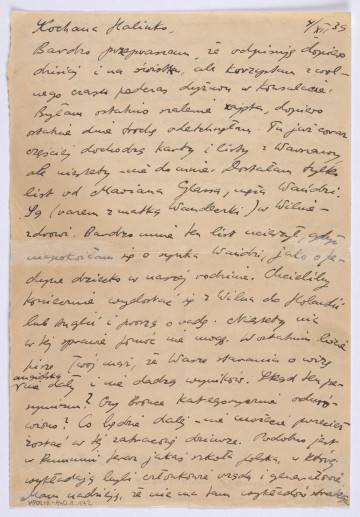 Kochana Halinko,
7/XII 39
Bardzo przepraszam, że odpisuję dopiero
dzisiaj i na świstku, ale korzystam z wol-
nego czasu podczas dyżuru w Konsulacie.
Byłam ostatnio szalenie zajęta, dopiero
ostatnie dwa trochę odetchnęłam. Tu już coraz
częściej dochodzą karty i listy z Warszawy
ale niestety nie do mnie. Dostałam tylko
list od Mariana Glassa, męża Wandzi.
Są (razem z matką Wandeczki) w Wilnie -
zdrowi. Bardzo mnie ten list ucieszył, gdyż
niepokoiłam się o synka Wandzi, jako o je-
dyne dziecko w naszej rodzinie. Chcieliby
koniecznie wydostać się z Wilna do Holandii
lub Anglii i proszą o radę. Niestety nic
w tej sprawie pomóc nie mogę. W ostatnim liście
pisze Twój mąż, że Wasze starania o wizy
angielską
nie dały i nie dadzą wyników. Skąd ten pe-
symizm? Czy Bronce kategorycznie odmó-
wiono? Co będzie dalej - nie możecie przecież
zostać w tej zatraconej dziurze. Podobno jest
w Rumunii teraz jakaś szkoła polska, w której
wykładają byli członkowie rządu i generałowie.
Mam nadzieję, że nie ma tam wykładów